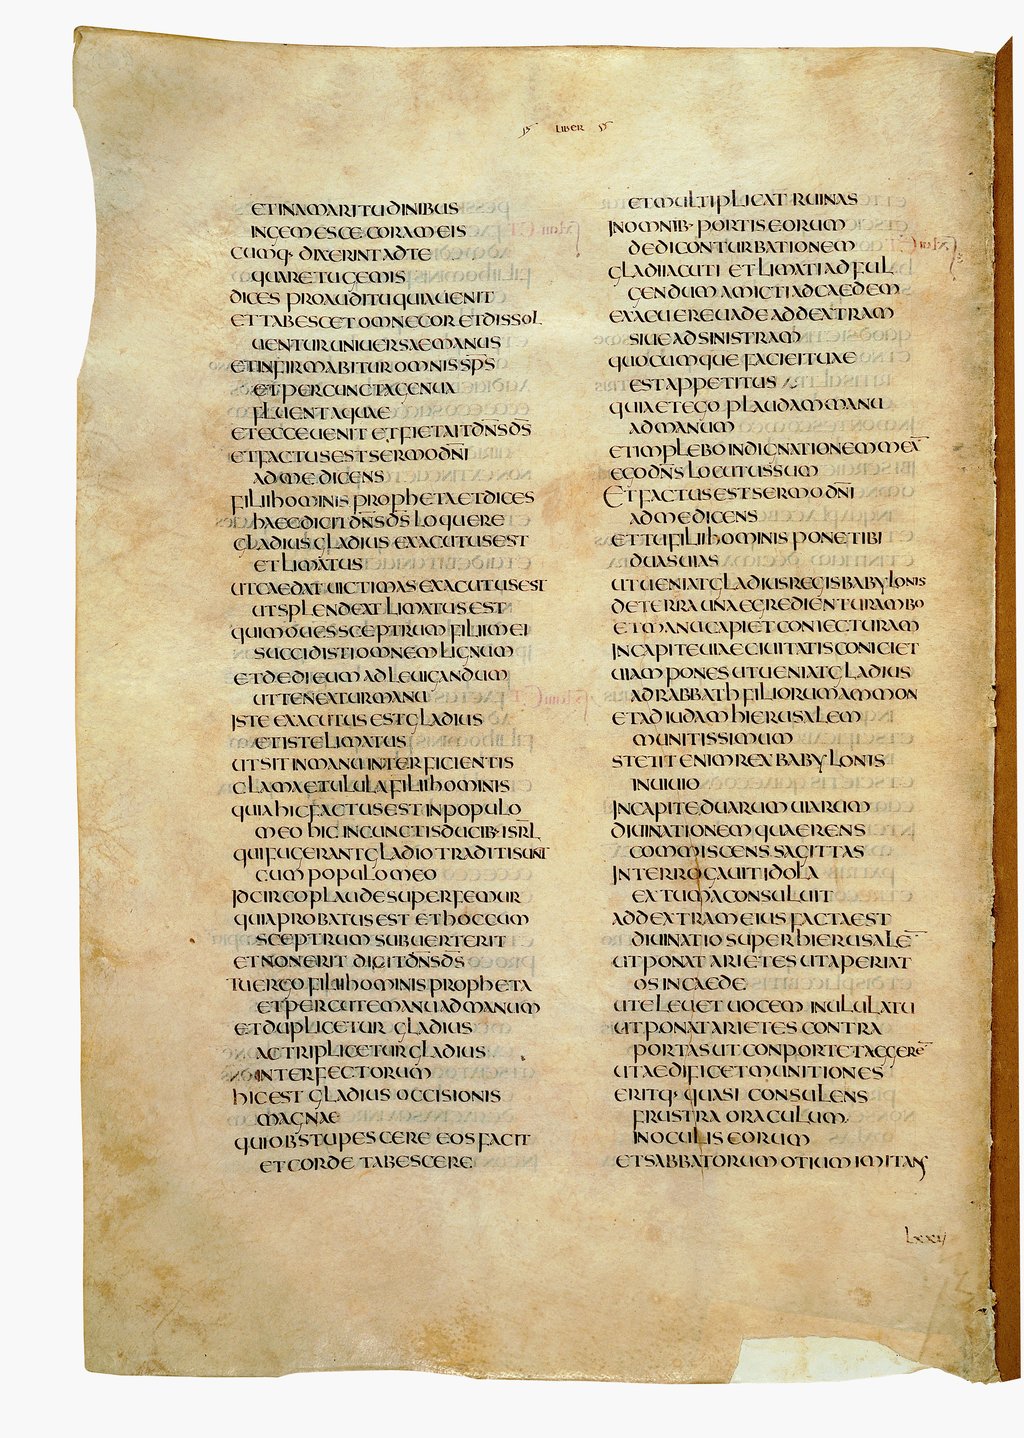 LIBER
ETINAMARITUDINIBUS
INGEMESCE CORAM EIS
CUMQ· DIXERINT ADTE
QUARE TU GEMIS
DICES PROAUDITU QUIA UENIT
ET TABESCET OMNE COR ET DISSOL
UENTUR UNIUERSAE MANUS
ET INFIRMABITUR OMNIS SP̅S
ET PER CUNCTA GENUA
FLUENT AQUAE
ET ECCE UENIT ET FIET AIT DN̅S DS̅
ET FACTUS EST SERMO DN̅I
AD ME DICENS
FILII HOMINIS PROPHETA ET DICES
HAEC DICIT DN̅S DS̅ LOQUERE
GLADIUS GLADIUS EXACUTUS EST
ET LIMATUS
UT CAEDAT UICTIMAS EXACUTUS EST
UT SPLENDEAT LIMATUS EST
QUI MOUES SCEPTRUM FILII MEI
SUCCIDISTI OMNEM LIGNUM
ET DEDI EUM AD LEUIGANDUM
UT TENEATUR MANU
ISTE EXACUTUS EST GLADIUS
ET ISTE LIMATUS
UT SIT IN MANU INTERFICIENTIS
CLAMA ET ULULA FILII HOMINIS
QUIA HIC FACTUS EST IN POPULO
MEO HIC IN CUNCTIS DUCIB· ISRL̅
QUI FUGERANT GLADIO TRADITI SUNT
CUM POPULO MEO
IDCIRCO PLAUDE SUPER FEMUR
QUIA PROBATUS EST ET HOC CUM
SCEPTRUM SUBUERTERIT
ET NON ERIT DICIT DN̅S DS̅
TU ERGO FILII HOMINIS PROPHETA
ET PERCUTE MANU AD MANUM
ET DUPLICETUR GLADIUS
AC TRIPLICETUR GLADIUS
INTERFECTORUM
HIC EST GLADIUS OCCISIONIS
MAGNAE
QUI OBSTUPESCERE EOS FACIT
ET CORDE TABESCERE
ET MULTIPLICAT RUINAS
IN OMNIB· PORTIS EORUM
DEDI CONTURBATIONEM
GLADII ACUTI ET LIMATI AD FUL
GENDUM AMICTI AD CAEDEM
EXACUERE UADE AD DEXTRAM
SIUE AD SINISTRAM
QUOCUMQUE FACIEI TUAE
EST APPETITUS
QUIA ET EGO PLAUDAM MANU
AD MANUM
ET IMPLEBO INDIGNATIONEM MEA̅
EGO DN̅S LOCUTUS SUM
ET FACTUS EST SERMO DN̅I
AD ME DICENS
ET TU FILII HOMINIS PONE TIBI
DUAS UIAS
UT UENIAT GLADIUS REGIS BABYLONIS
DE TERRA UNA EGREDIENTUR AMBO
ET MANU CAPIET CONIECTURAM
IN CAPITE UIAE CIUITATIS CONICIET
UIAM PONES UT UENIAT GLADIUS
AD RABBATH FILIORUM AMMON
ET AD IUDAM HIERUSALEM
MUNITISSIMUM
STETIT ENIM REX BABYLONIS
IN UIUIO
IN CAPITE DUARUM UIARUM
DIUINATIONEM QUAERENS
COMMISCENS SAGITTAS
INTERROGAUIT IDOLA
EXTUMA CONSULUIT
AD DEXTRAM EIUS FACTA EST
DIUINATIO SUPER HIERUSALE̅
UT PONAT ARIETES UT APERIAT
OS IN CAEDE
UT ELEUET UOCEM IN ULULATU
UT PONAT ARIETES CONTRA
PORTAS UT CONPORTET AGGERE̅
UT AEDIFICET MUNITIONES
ERITQ· QUASI CONSULENS
FRUSTRA ORACULUM
IN OCULIS EORUM
ET SABBATORUM OTIUM IMITANS